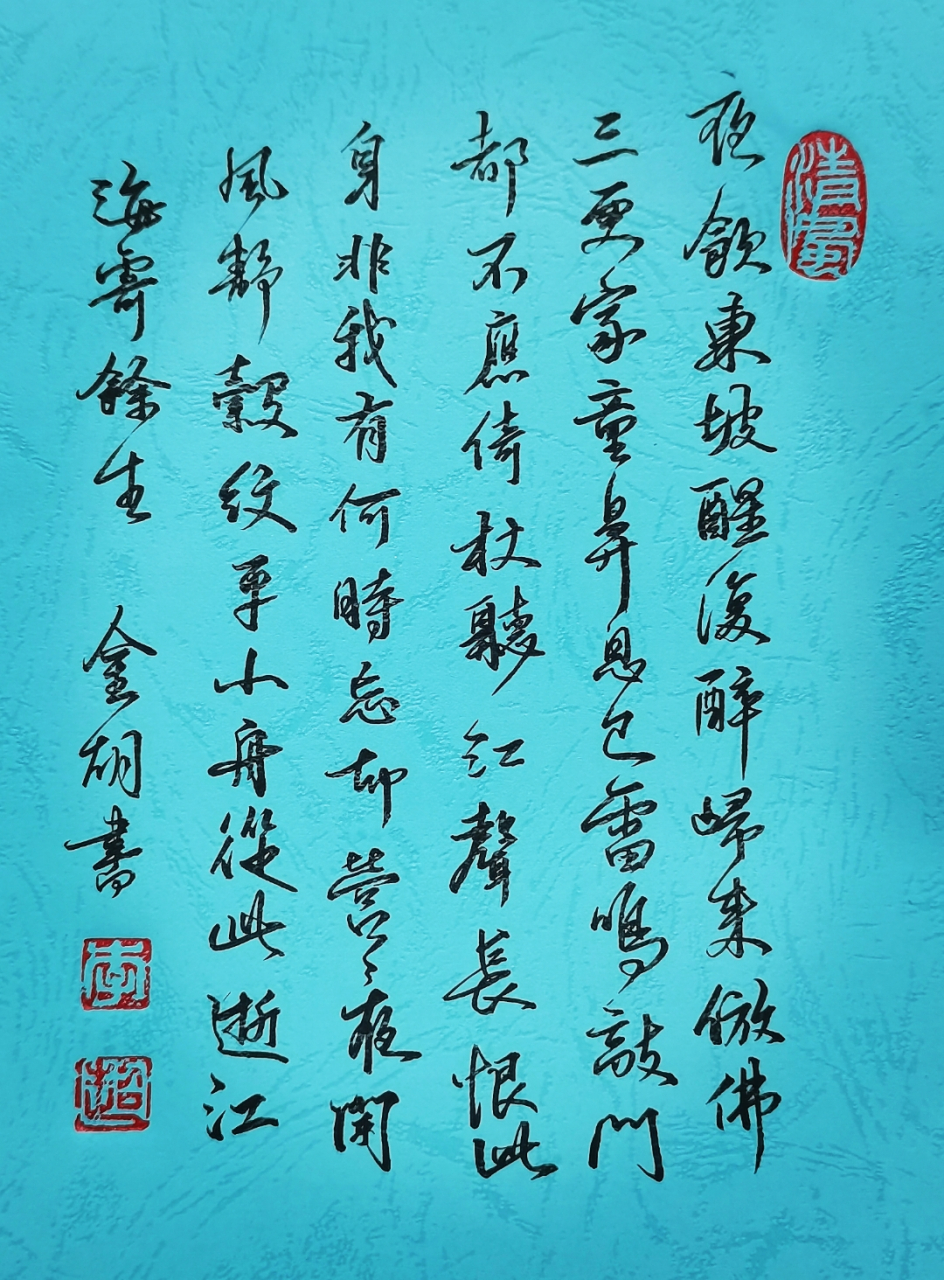 夜飲東坡醒復醉歸來倣佛
三更家童鼻息已雷鳴敲門
都不應倚杖聽江聲長恨此
身非我有何時忘却營〻夜闌
風靜縠紋平小舟從此逝江
海寄餘生 金胡書